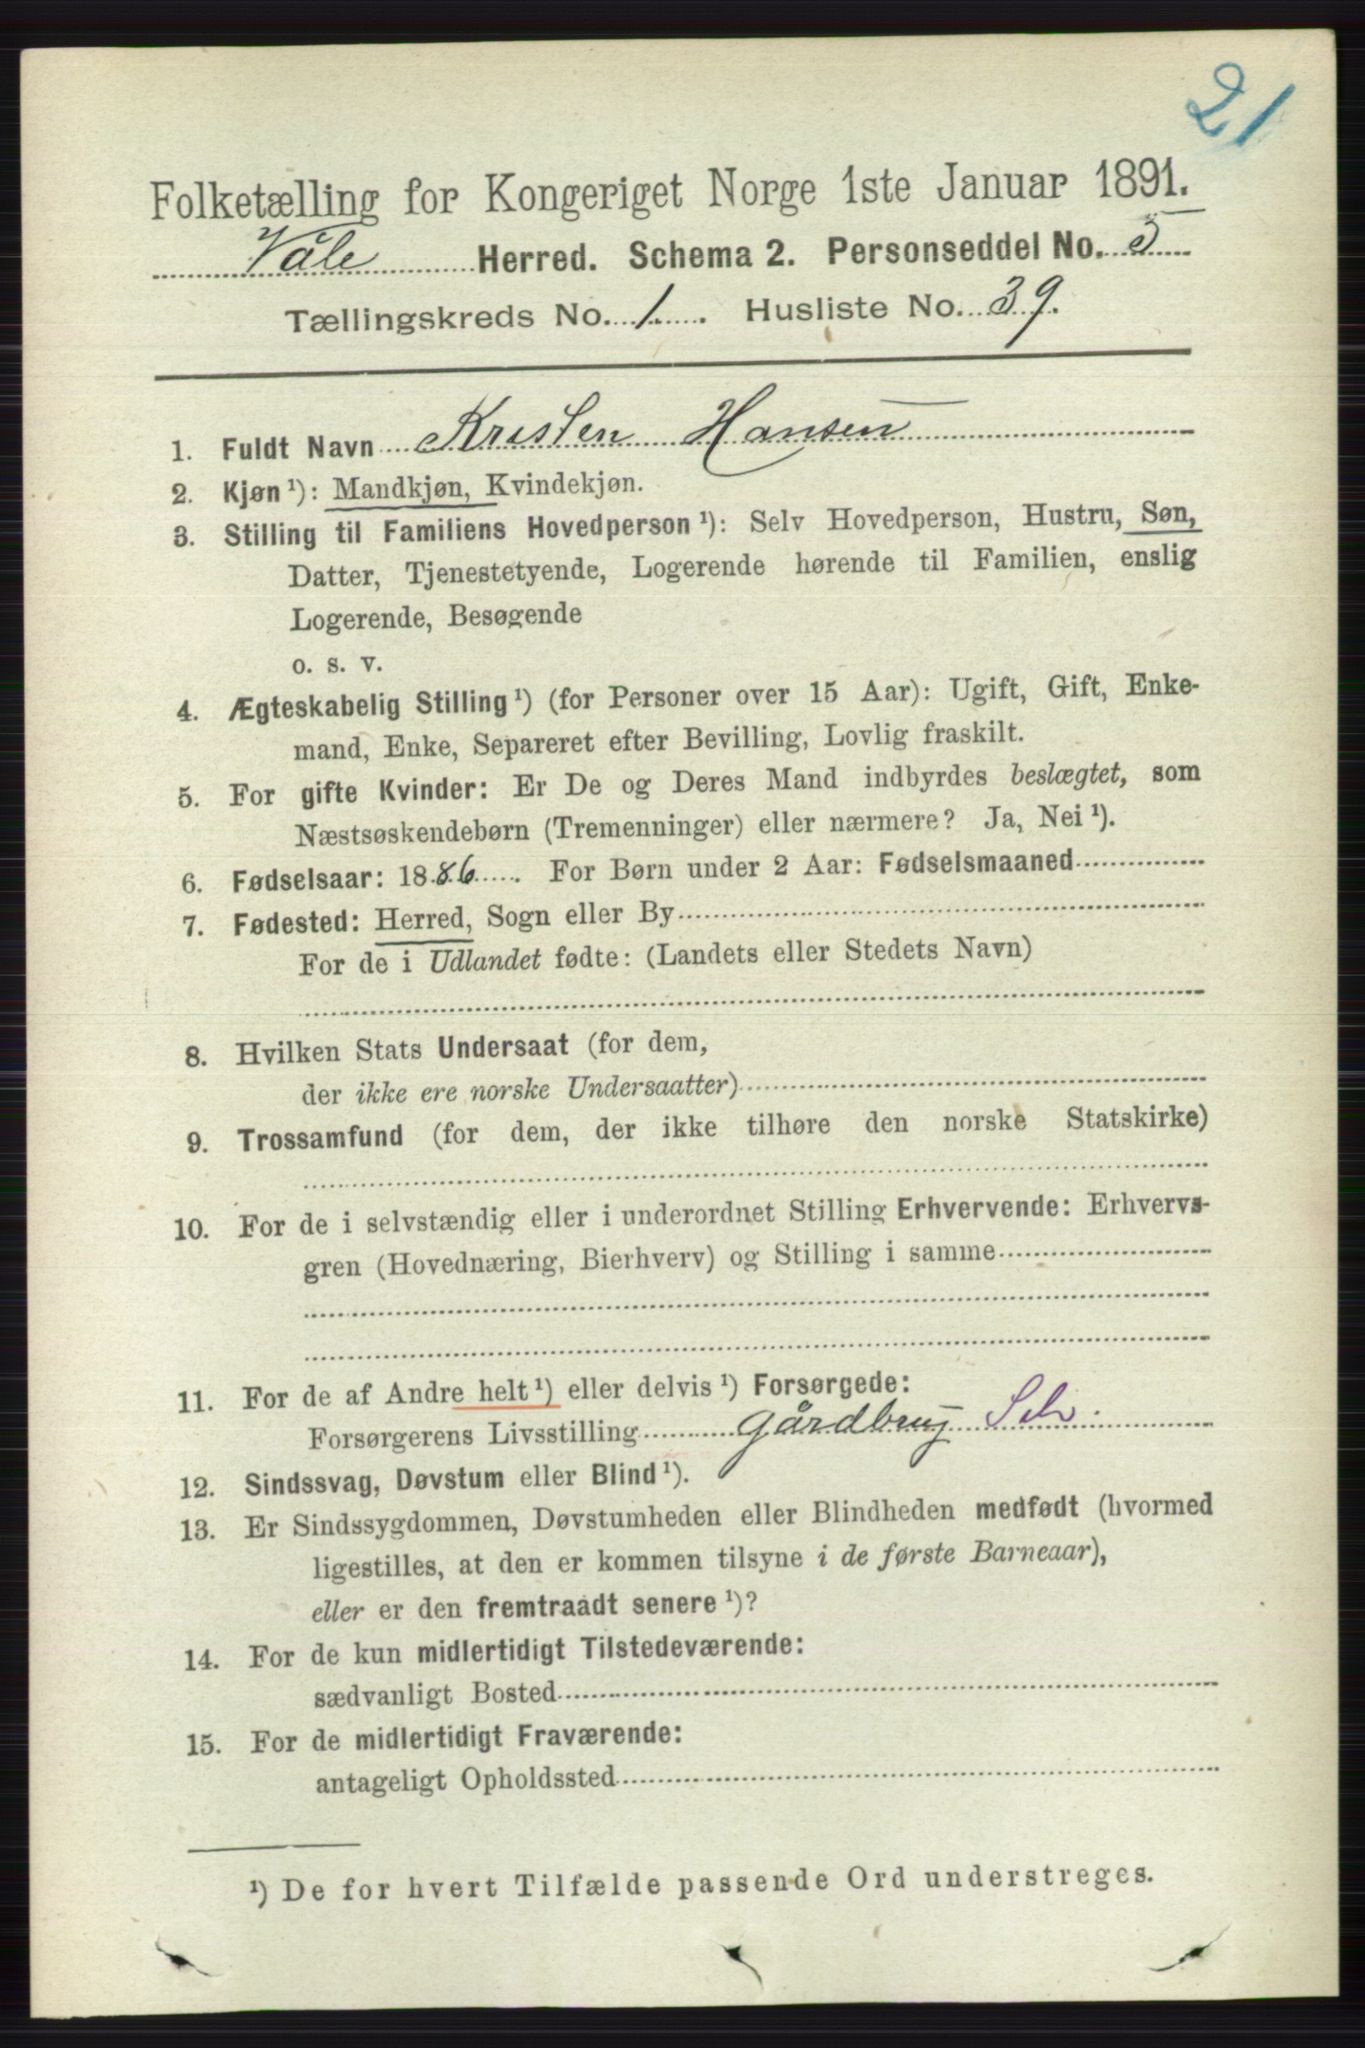 21
Folketælling for Kongeriget Norge 1ste Januar 1891.
Våle Herred. Schema 2. Personseddel No. 5
Tællingskreds No. 1. Husliste No. 39.
1. Fuldt Navn Kristen Hansen
2. Kjøn ¹): Mandkjøn, Kvindekjøn.
3. Stilling til Familiens Hovedperson ¹): Selv Hovedperson, Hustru, Søn,
Datter, Tjenestetyende, Logerende hørende til Familien, enslig
Logerende, Besøgende
o. s. v.
4. Ægteskabelig Stilling ¹) (for Personer over 15 Aar): Ugift, Gift, Enke-
mand, Enke, Separeret efter Bevilling, Lovlig fraskilt.
5. For gifte Kvinder: Er De og Deres Mand indbyrdes beslægtet, som
Næstsøskendebørn (Tremenninger) eller nærmere? Ja, Nei ¹).
6. Fødselsaar: 1886. For Børn under 2 Aar: Fødselsmaaned
7. Fødested: Herred, Sogn eller By
For de i Udlandet fødte: (Landets eller Stedets Navn)
8. Hvilken Stats Undersaat (for dem,
der ikke ere norske Undersaatter)
9. Trossamfund (for dem, der ikke tilhøre den norske Statskirke)
10. For de i selvstændig eller i underordnet Stilling Erhvervende: Erhvervs-
gren (Hovednæring, Bierhverv) og Stilling i samme
11. For de af Andre helt ¹) eller delvis ¹) Forsørgede:
Forsørgerens Livsstilling gårdbrug Selv.
12. Sindssvag, Døvstum eller Blind ¹).
13. Er Sindssygdommen, Døvstumheden eller Blindheden medfødt (hvormed
ligestilles, at den er kommen tilsyne i de første Barneaar),
eller er den fremtraadt senere ¹)?
14. For de kun midlertidigt Tilstedeværende:
sædvanligt Bosted
15. For de midlertidigt Fraværende:
antageligt Opholdssted
¹) De for hvert Tilfælde passende Ord understreges.